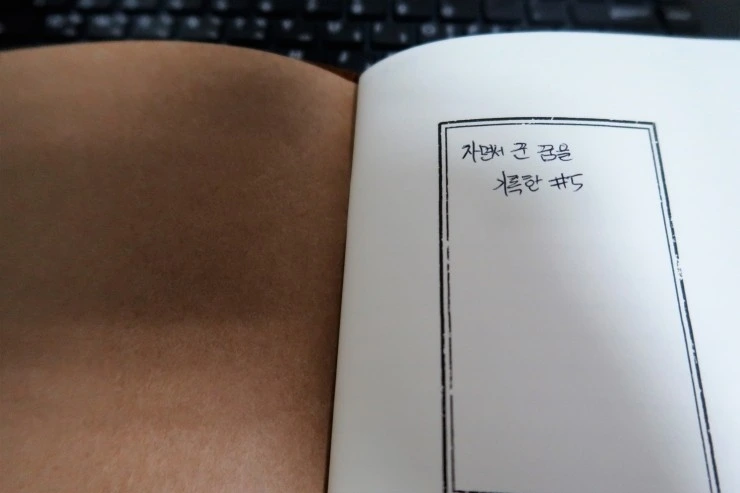 자면서 꾼 꿈을
기록한 #5